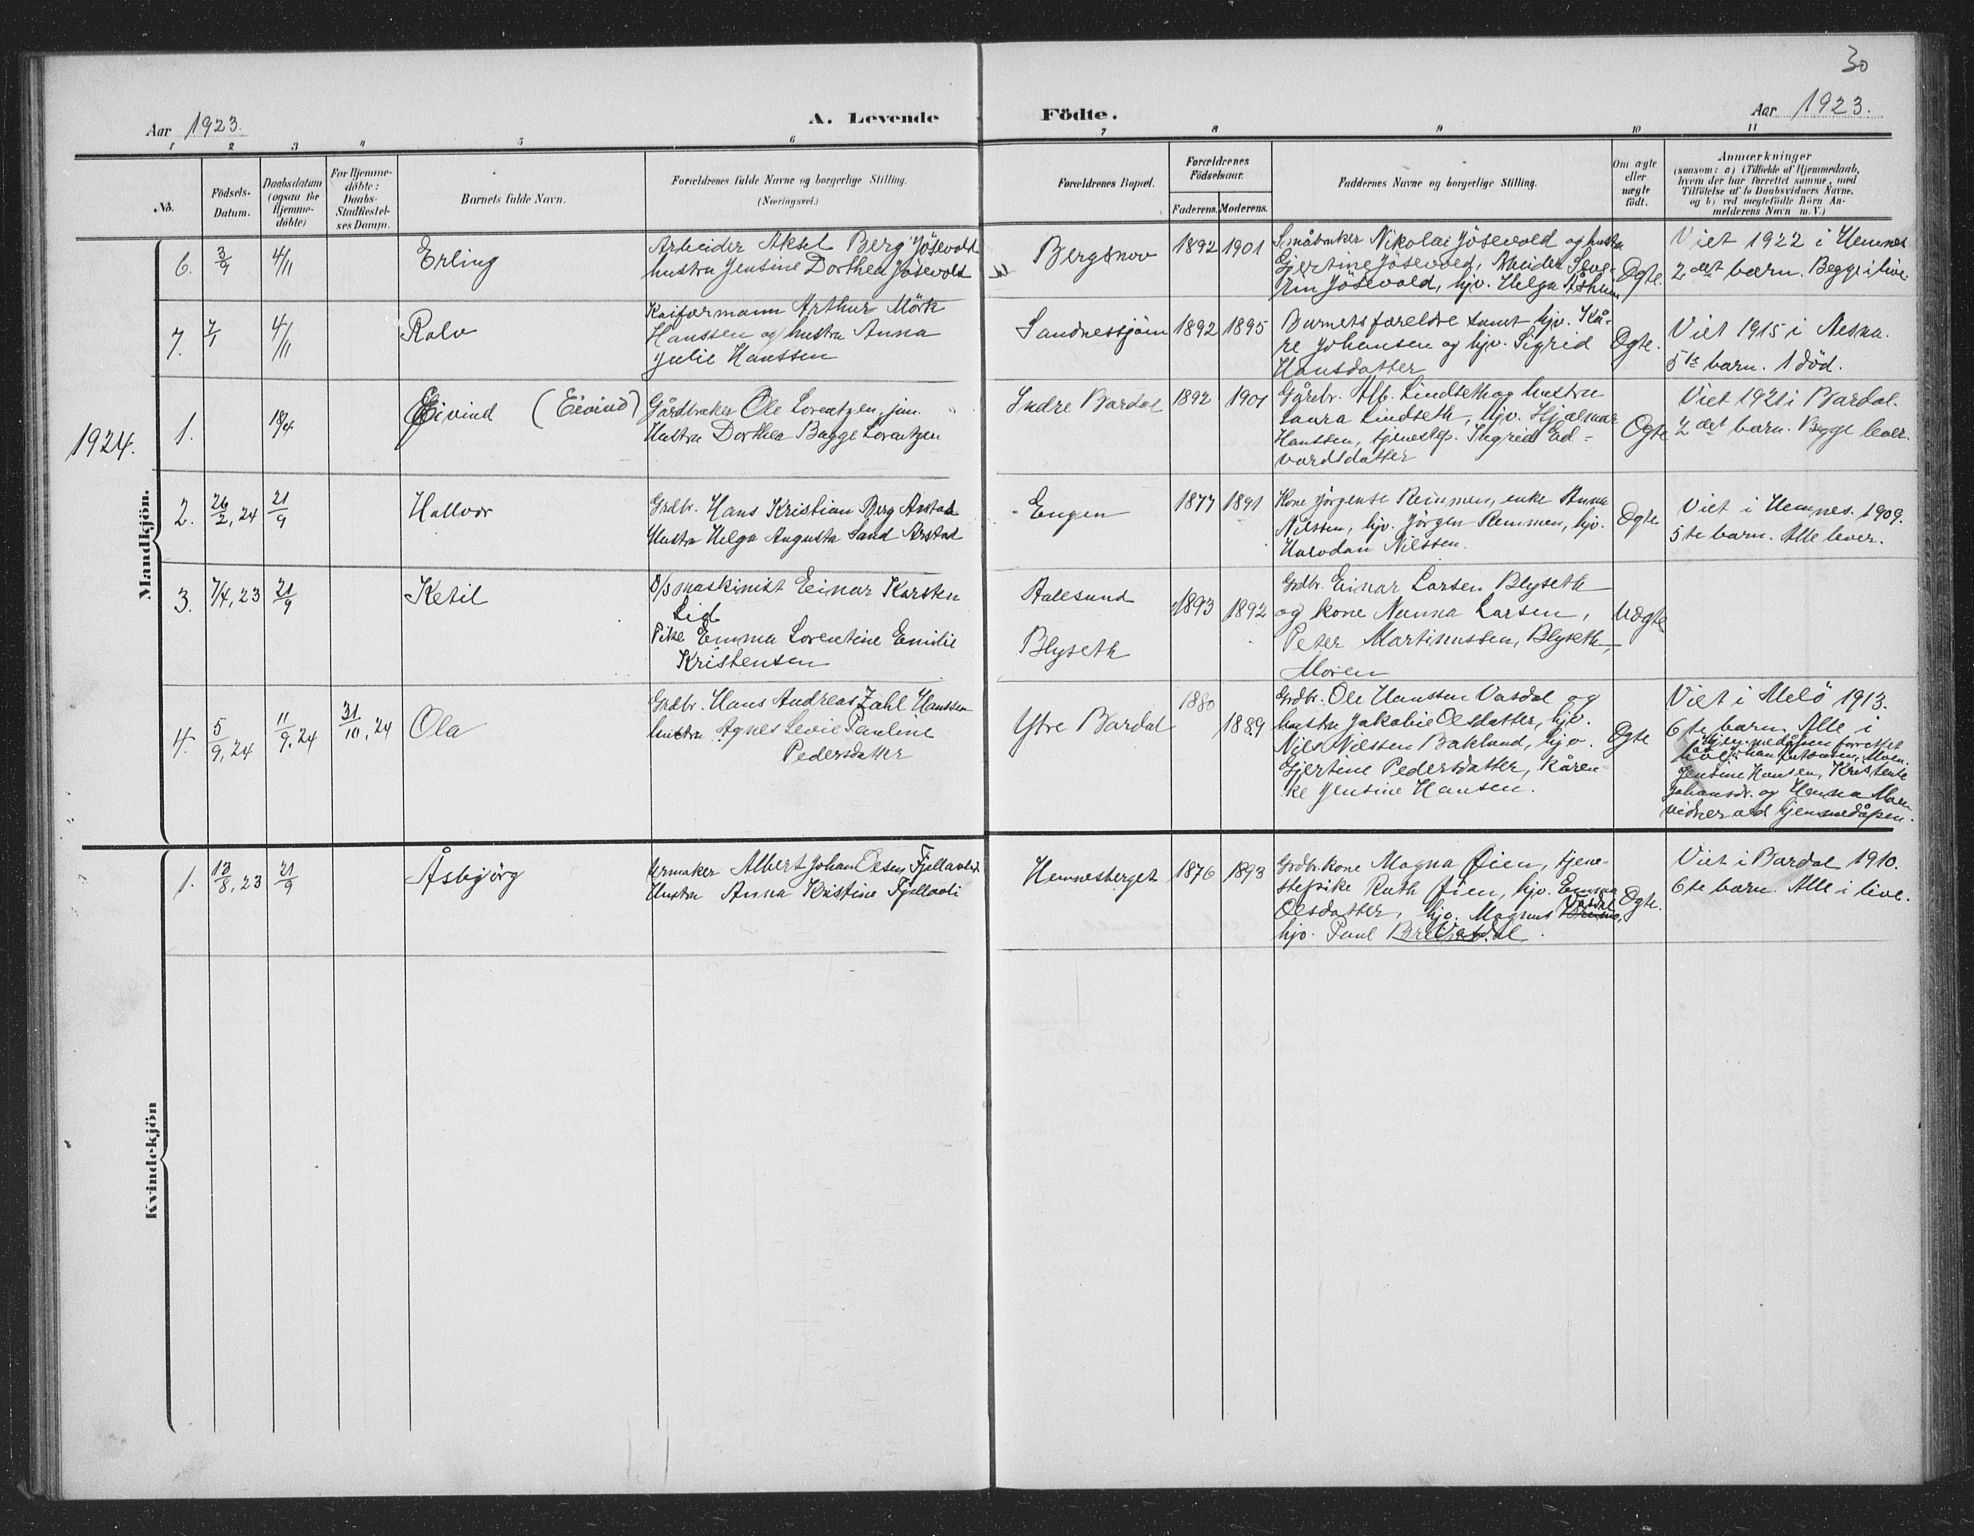 30
Aar 1923.
A. Levende Födte.
Aar 1923.
1 2 3 4 5 6 7 8 9 10 11
No.
Födsels-
Datum.
Daabsdatum
(ogsaa for
Hjemme-
döbte)
For Hjemme-
döbte:
Daabs-
Stadfæstel-
ses Datum.
Barnets fulde Navn.
Forældrenes fulde Navne og borgerlige Stilling.
(Næringsvei.)
Forældrenes Bopæl.
Forældrenes
Födselsaar.
Faderens. Moderens.
Faddernes Navne og borgerlige Stilling.
Om ægte
eller
uægte
födt.
Anmærkninger
(saasom: a) i Tilfælde af Hjemmedaab,
hvem der har forrettet samme, med
Tilföielse af to Daabsvidners Navne,
og b) ved uegtefödte Börn An-
melderens Navn m. V.)
Mandkjön.
6. 3/9 4/11 Erling
Arbeider Aksel Berg Jösevold
hustru Jensine Dorthea Jösevold
Bergsnov
1892 1901
Småbruker Nikolai Jösevold og hustru
Gjertine Jösevold, Arbeider Seve-
rin Jösevold, hjv. Helga
Ogte.
Viet 1922 i Hemnes
2det barn. Begge i live
7. 7/1 4/11 Rolv
Kaiformann Arthur Mörk
Hanssen og hustru Anna
Julie Hanssen
Sandnessjöen
1892 1895
Barnets foreldre samt hjv. Kå-
re Johansen og hjv. Sigrid
Hansdatter
Ogte.
Viet 1915 i Nesna.
5te barn. 1 död.
1924.
1. 18/4 Eivind (Eivind)
Gårdbruker Ole Lorentzen, jun.
Hustru Dorthea Bugge Lorentzen
Indre Bardal
1892 1901
Gårdbr. Alb. Lindseth og hustru
Laura Lindseth, hjv. Hjalmar
Hanssen, tjenestep. Ingrid Ed-
vardsdatter
Ogte
Viet 1921 i Bardal.
2det barn. Begge lever.
2. 26/2, 24 21/9 Hallvor
Grdbr. Hans Kristian Berg Arstad
Hustru Helga Augusta Sand Arstad
Engen
1877 1891
Kone Jörgense Remmen, enke Anna
Nilssen, hjv. Jörgen Remmen, hjv.
Nilssen.
Ogte
Viet i Hemnes. 1909.
5te barn. Alle lever.
3. 7/4, 23 21/9 Ketil
D/s maskinist Einar Karsten
Lid
Pike Emma Lorentine Emilie
Kristensen
Aalesund
Blyseth
1893 1892
Grdbr. Einar Larsen Blyseth
og kone Nanna Larsen,
Peter Martinussen, Blyseth,
Moren
Uogte
4. 5/9, 24 11/9, 24 31/10, 24 Ola
Grdbr. Hans Andreas Zahl Hanssen
hustru Agnes Levie Pauline
Pedersdatter
Ytre Bardal
1880 1889
Grdbr. Ole Hanssen Vasdal og
hustru Jakobie Olsdatter, hjv.
Nils Nilssen Bakland, hjv.
Gjertine Pedersdatter, Kåren-
ke Jensine Hansen.
Ogte
Viet i Melö 1913.
6te barn. Alle i
live. Hjemmedåpen forrettet
Jensine Hansen, Kristente
Johansdr. og Hanna Moen
vidner ved hjemmedåpen.
Kvindekjön
1. 13/8, 23 21/9 Åsbjörg
Urmaker Albert Johan Olsen Fjellavli
Hustru Anna Kristine Fjellavli
Hemnesberget
1876 1893
Grdbr.kone Magna Öien, tjene-
stepike Ruth Öien, hjv. Emma
Olsdatter, hjv. Magnus Vasdal,
hjv. Paul Vasdal.
Ogte.
Viet i Bardal 1910.
6te barn. Alle i live.